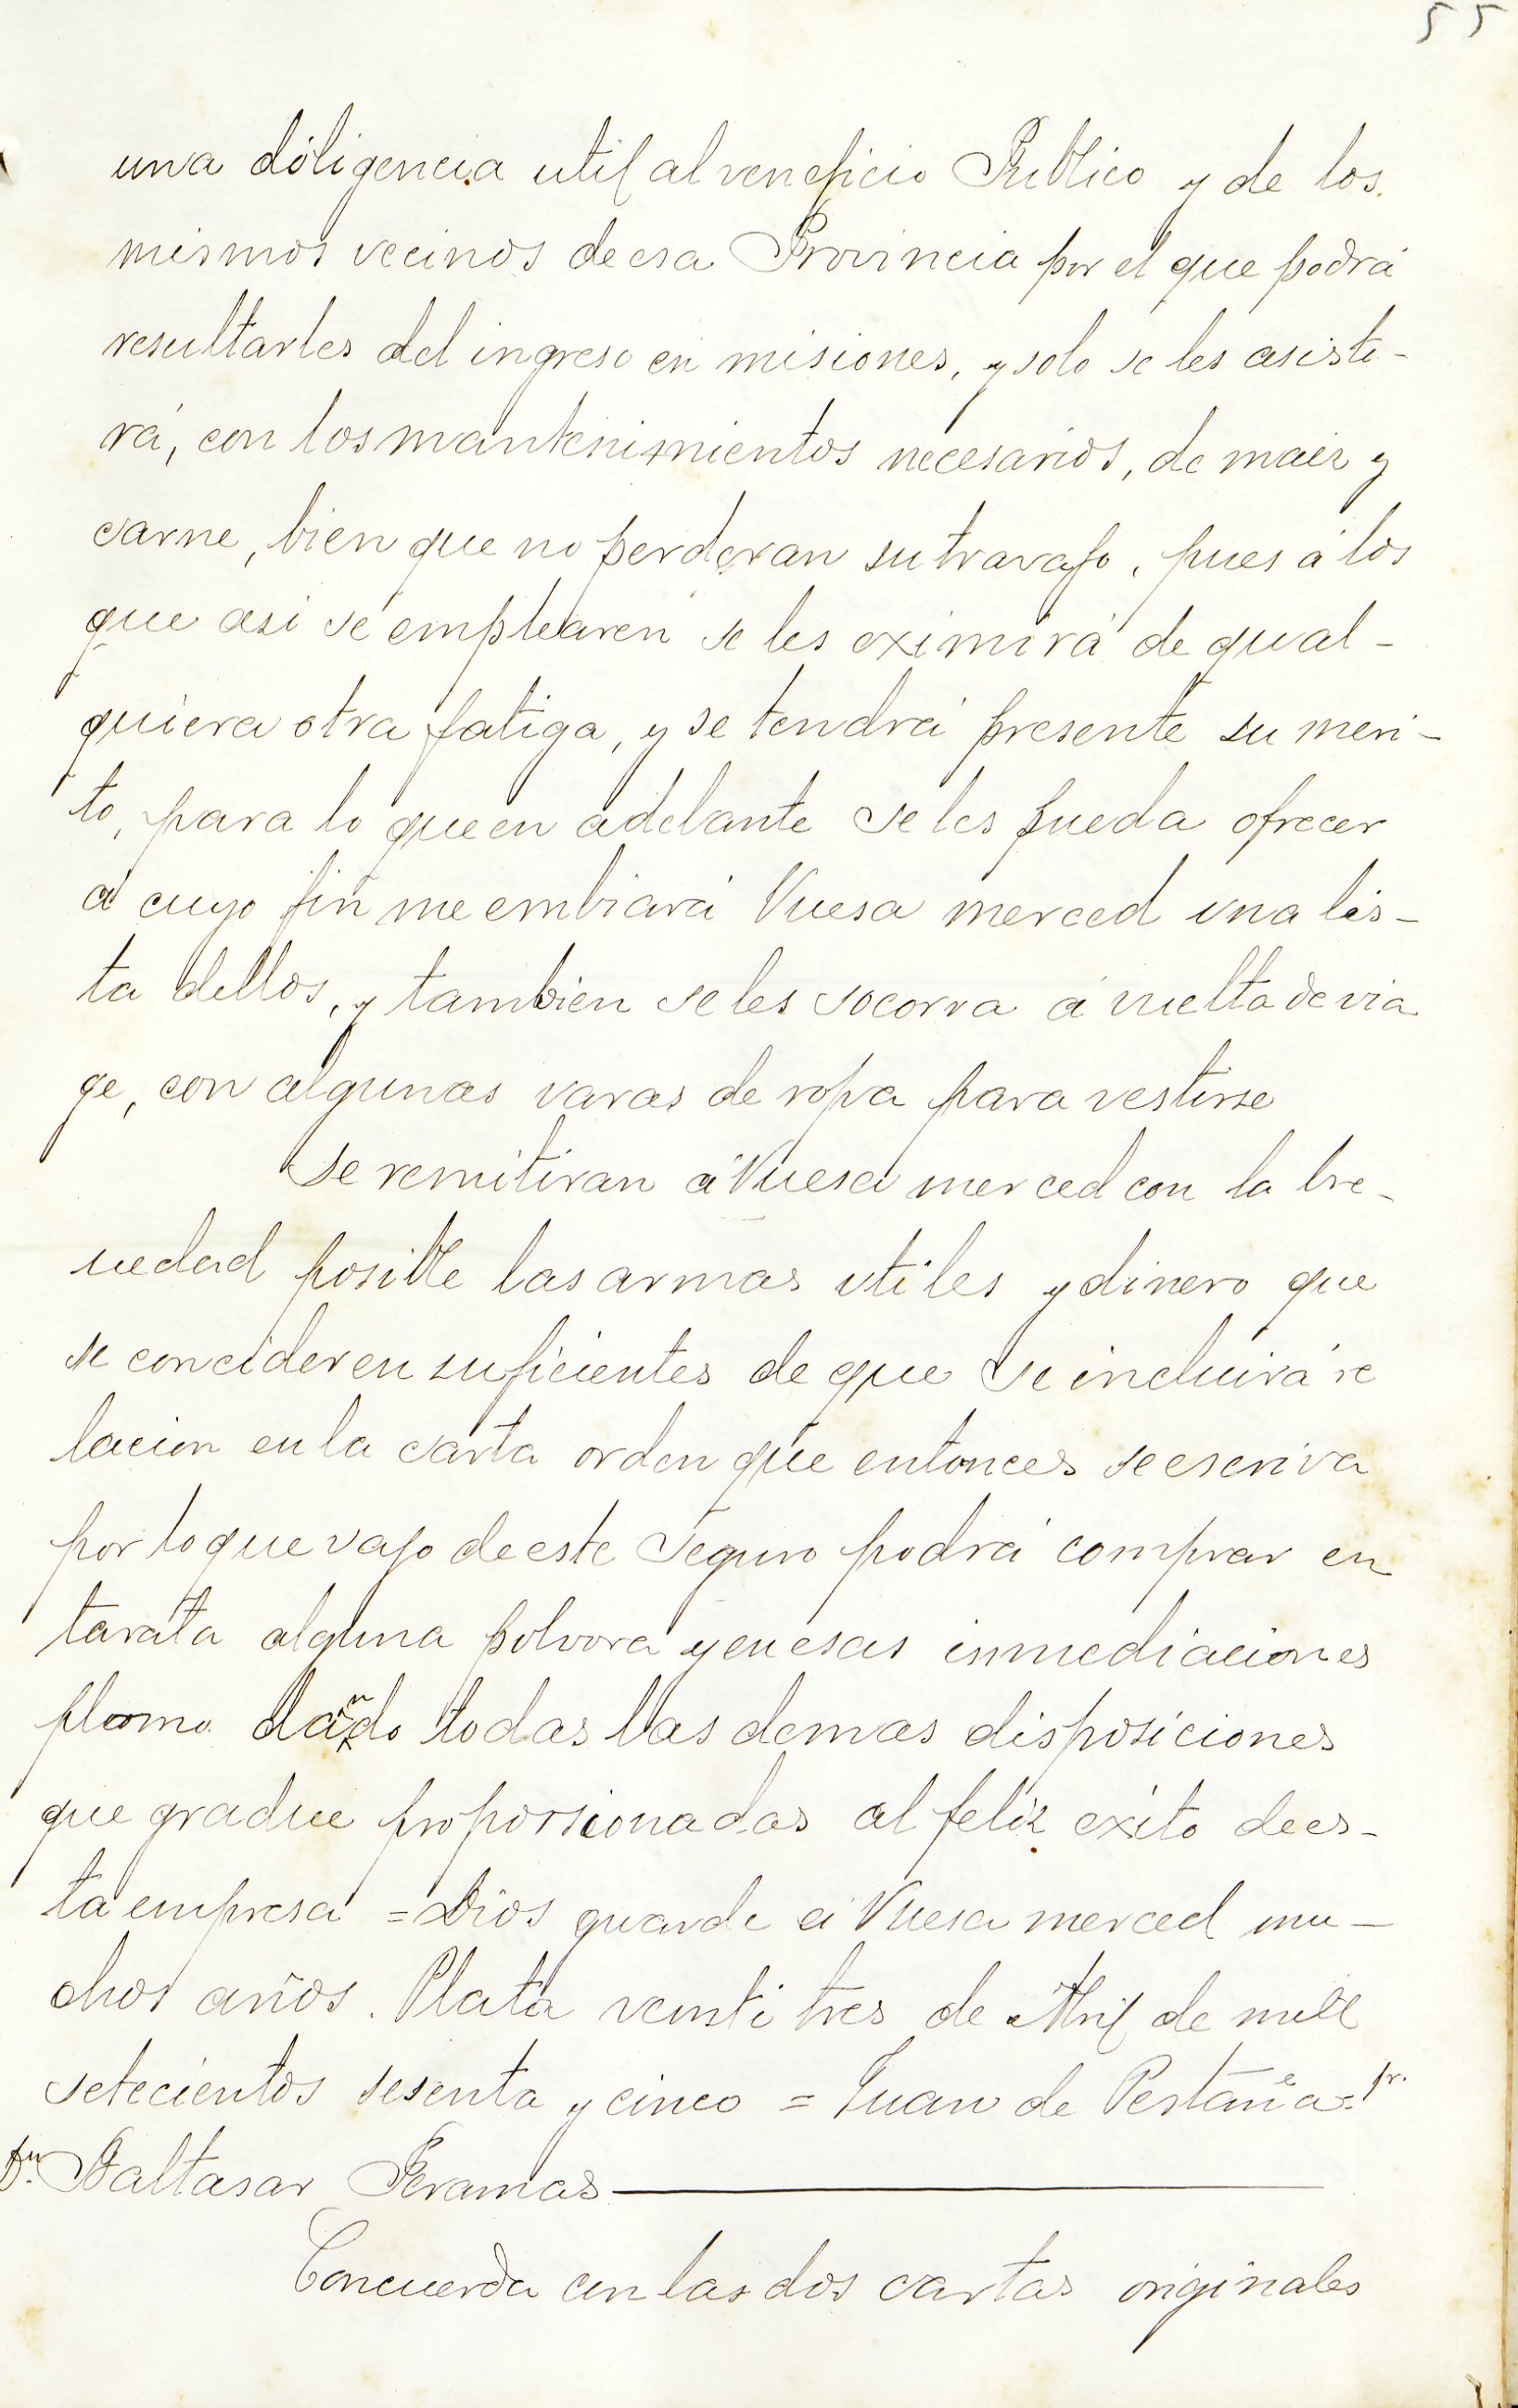 55
una diligencia util al veneficio Publico y de los
mismos vecinos de esa Provincia por el que podrá
resultarles del ingreso en misiones, y solo se les asisti-
rá, con los mantenimientos necesarios, de maiz y
carne, bien que no perderan su travajo, pues á los
que asi se emplearen se les eximirá de qual-
quiera otra fatiga, y se tendrá presente su meri-
to, para lo que en adelante se les pueda ofrecer
á cuyo fin me embiará Vuesa merced una lis-
ta dellos, y tambien se les socorra á vuelta de via
ge, con algunas varas de ropa para vestirse
Se remitiran á Vuesa merced con la bre-
vedad posible las armas utiles y dinero que
se concideren suficientes de que se incluirá re
lacion en la carta orden que entonces se escriva
por lo que vajo de este seguro podrá comprar en
tarata alguna polvora y en esas inmediaciones
plomo dando todas las demas disposiciones
que gradue proporsionadas al feliz exito de es-
ta empresa = Dios guarde á Vuesa merced mu-
chos años. Plata veinti tres de Abril de mill
setecientos sesenta y cinco = Juan de Pestaña = Sr.
Dn. Baltasar Peramas
Concuerda con las dos cartas originales